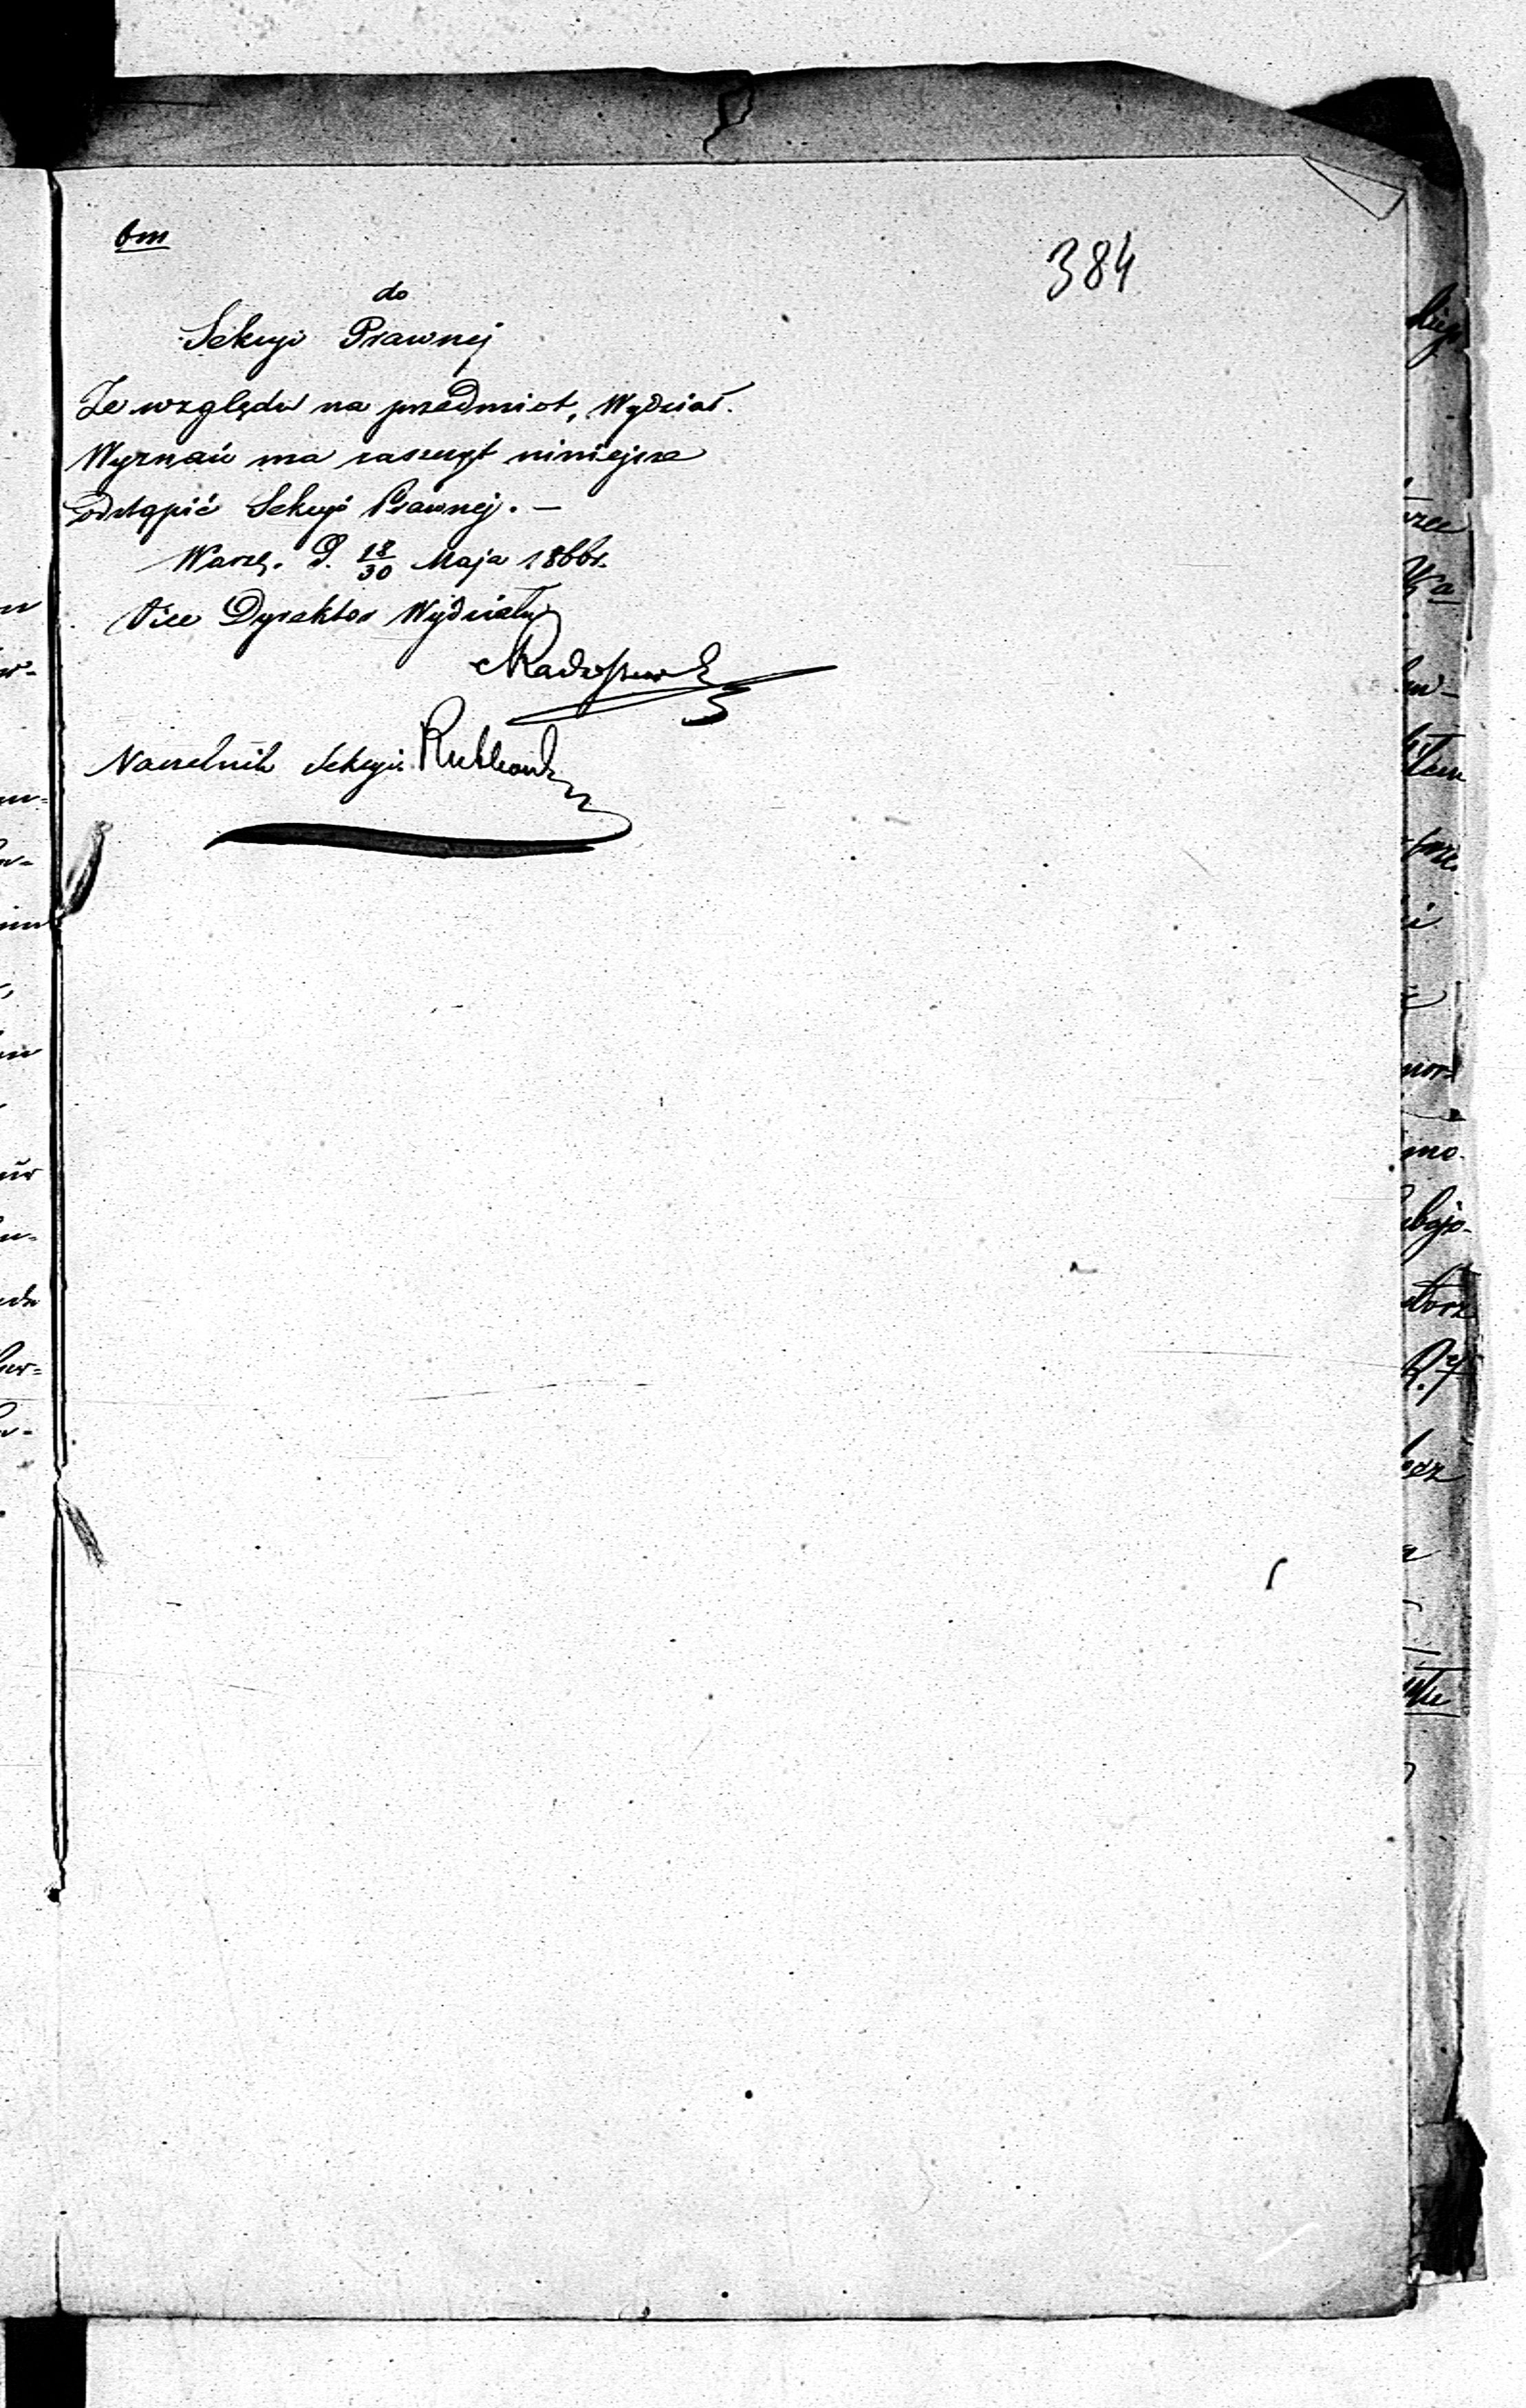 bm
384
do
Sekcyi Prawnej
Ze względu na przedmiot, Wydział
Wyznań ma zaszczyt niniejsze
odstąpić Sekcyi Prawnej. —
Warsz. D. 18/30 Maja 1866 r.
Vice Dyrektor Wydziału
Naczelnik Sekcyi